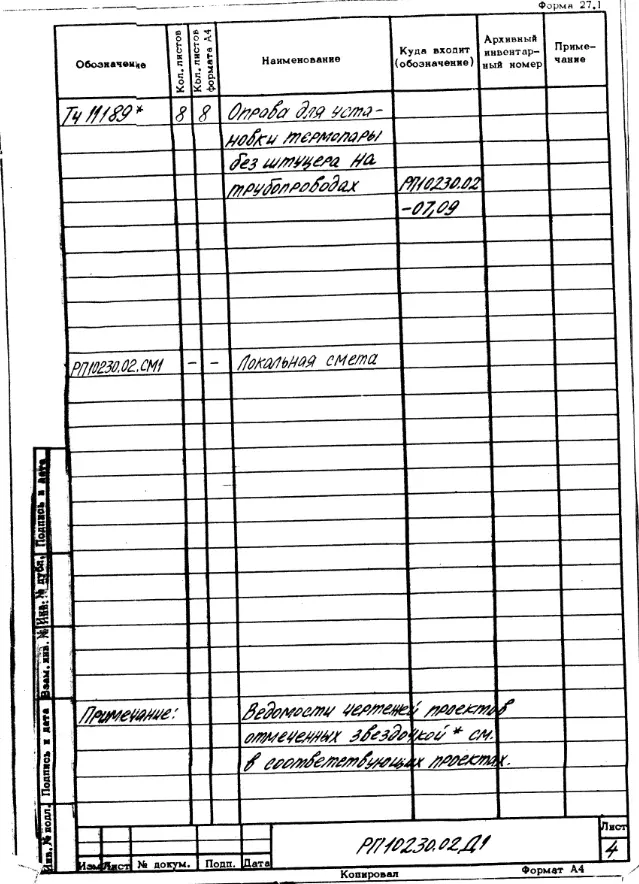 Форма 27.1
Обозначение
Кол. листов
Кол. листов формата А4
Наименование
Куда входит (обозначение)
Архивный инвентарный номер
Примечание
Тч 11189* 8 8 Оправа для уста-
новки термопары
без штуцера на
трубопроводах РП10230.02
-07,09
РП10230.02.СМ1 - - Локальная смета
Примечание: Ведомости чертежей проектов
отмеченных звездочкой * см.
в соответствующих проектах.
Подпись и дата
Инв. № дубл.
Взам. инв. №
Подпись и дата
Инв. № подл.
Изм Лист № докум. Подп. Дата
РП10230.02Д1
Лист
4
Копировал Формат А4